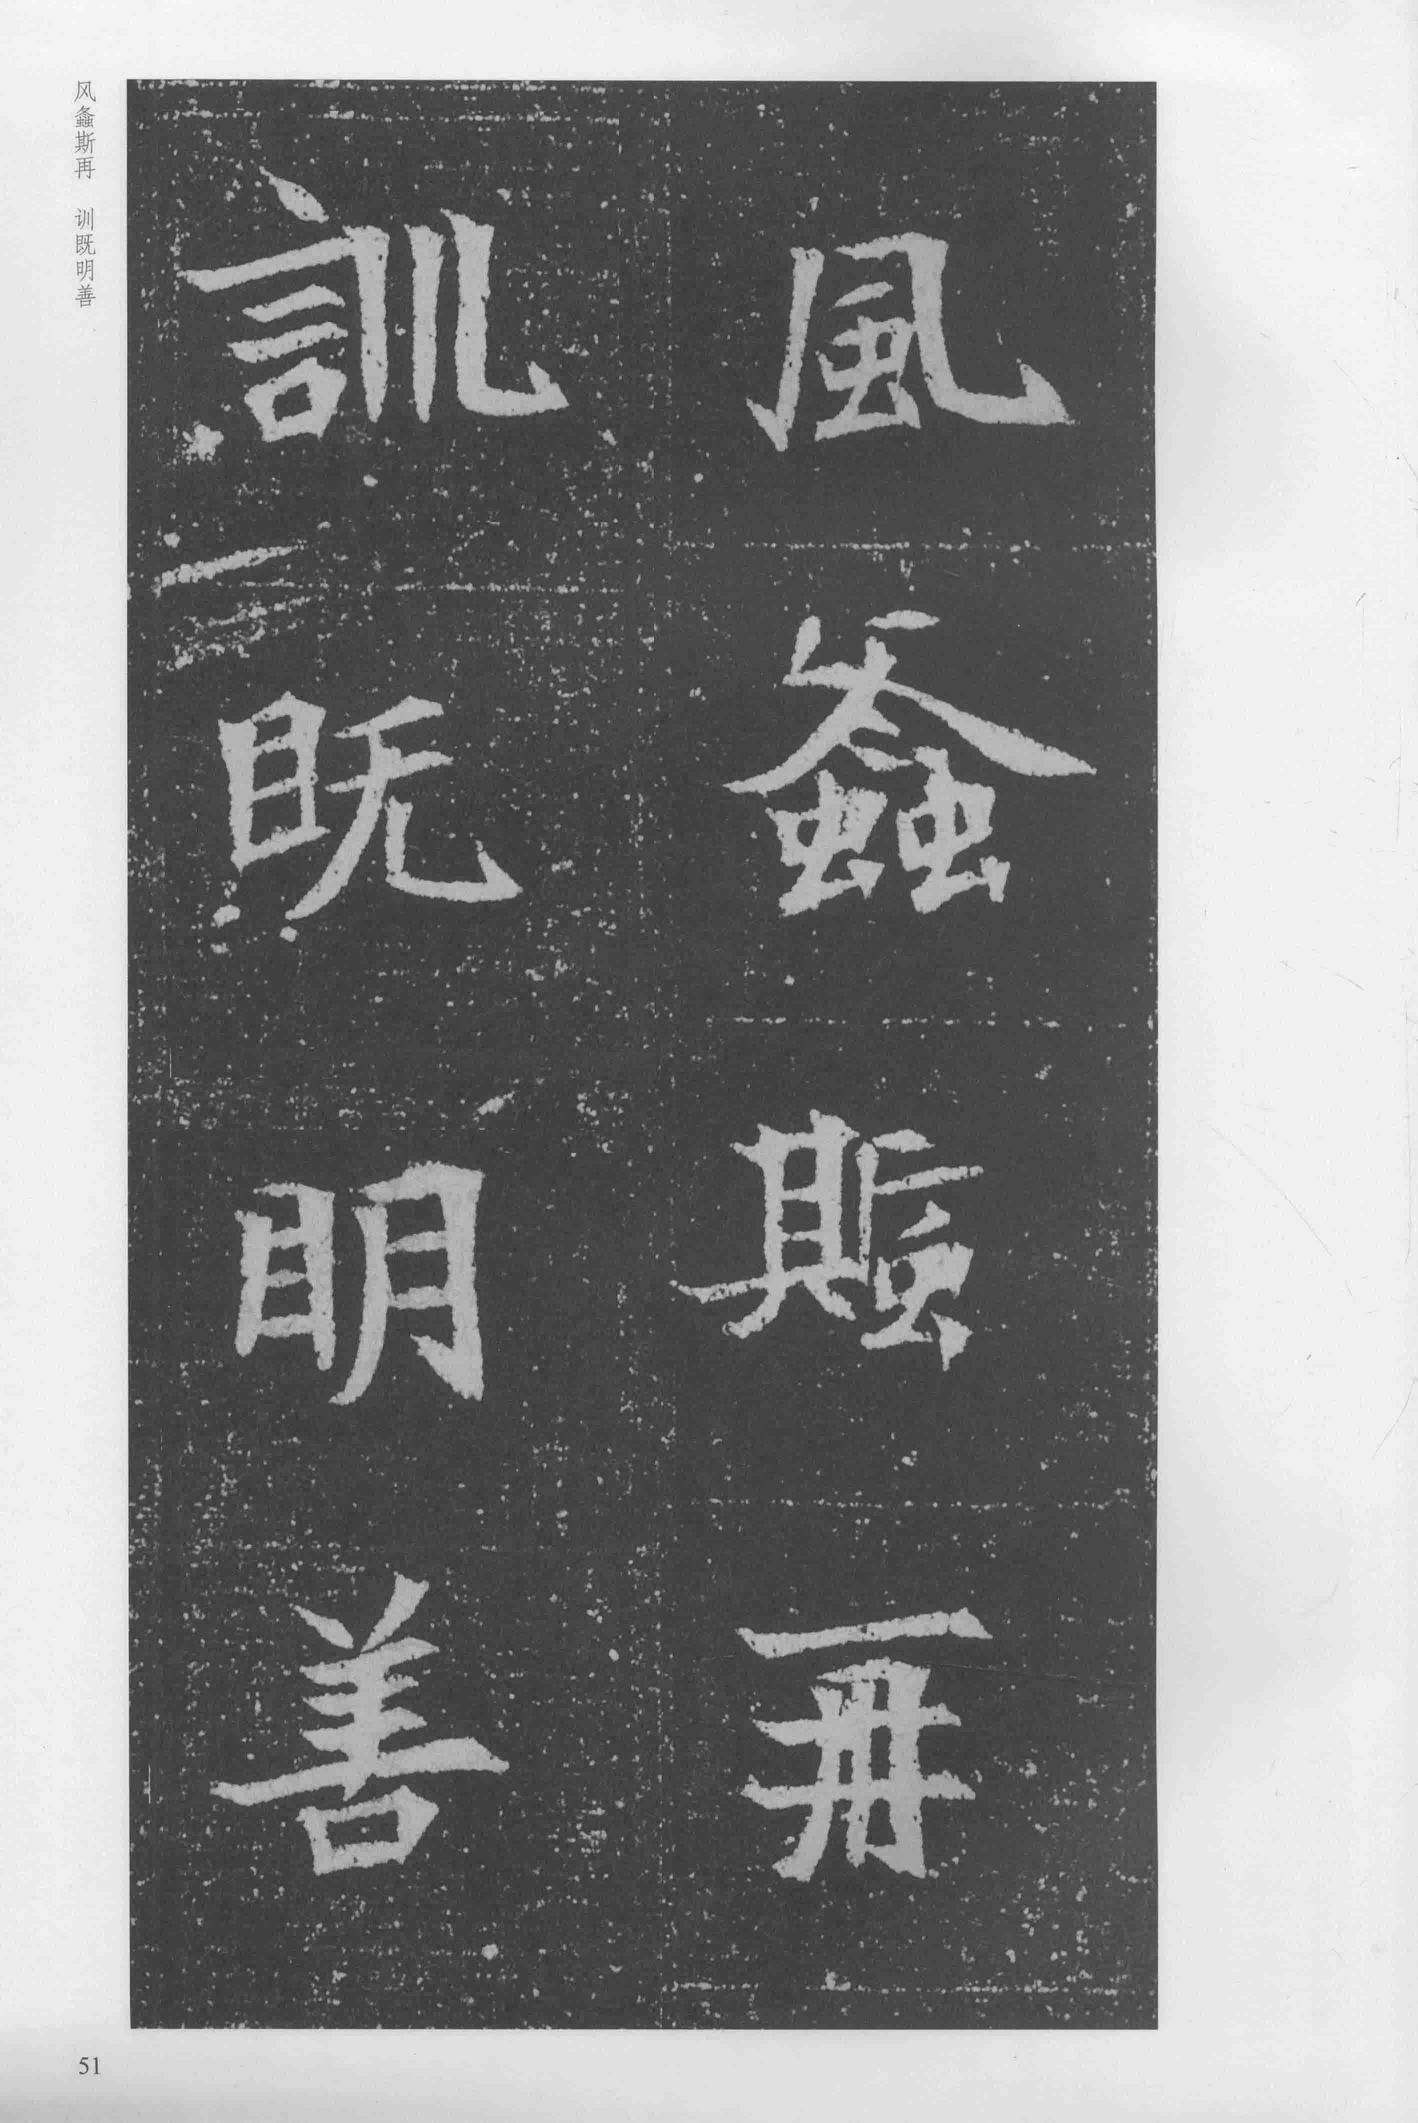 風螽蟖再
訓既明善
风螽斯再 训既明善
51